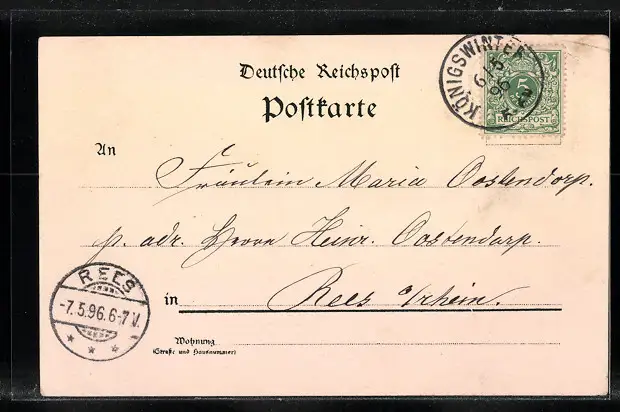 Deutsche Reichspost
Postkarte
KÖNIGSWINTER
6/5
96
5
REICHSPOST
An
Fräulein Maria Oostendorp.
p. adr. Herrn Heinr. Oostendorp.
in Rees a/rhein.
REES
-7.5.96.6-7V.
Wohnung
(Straße und Hausnummer)